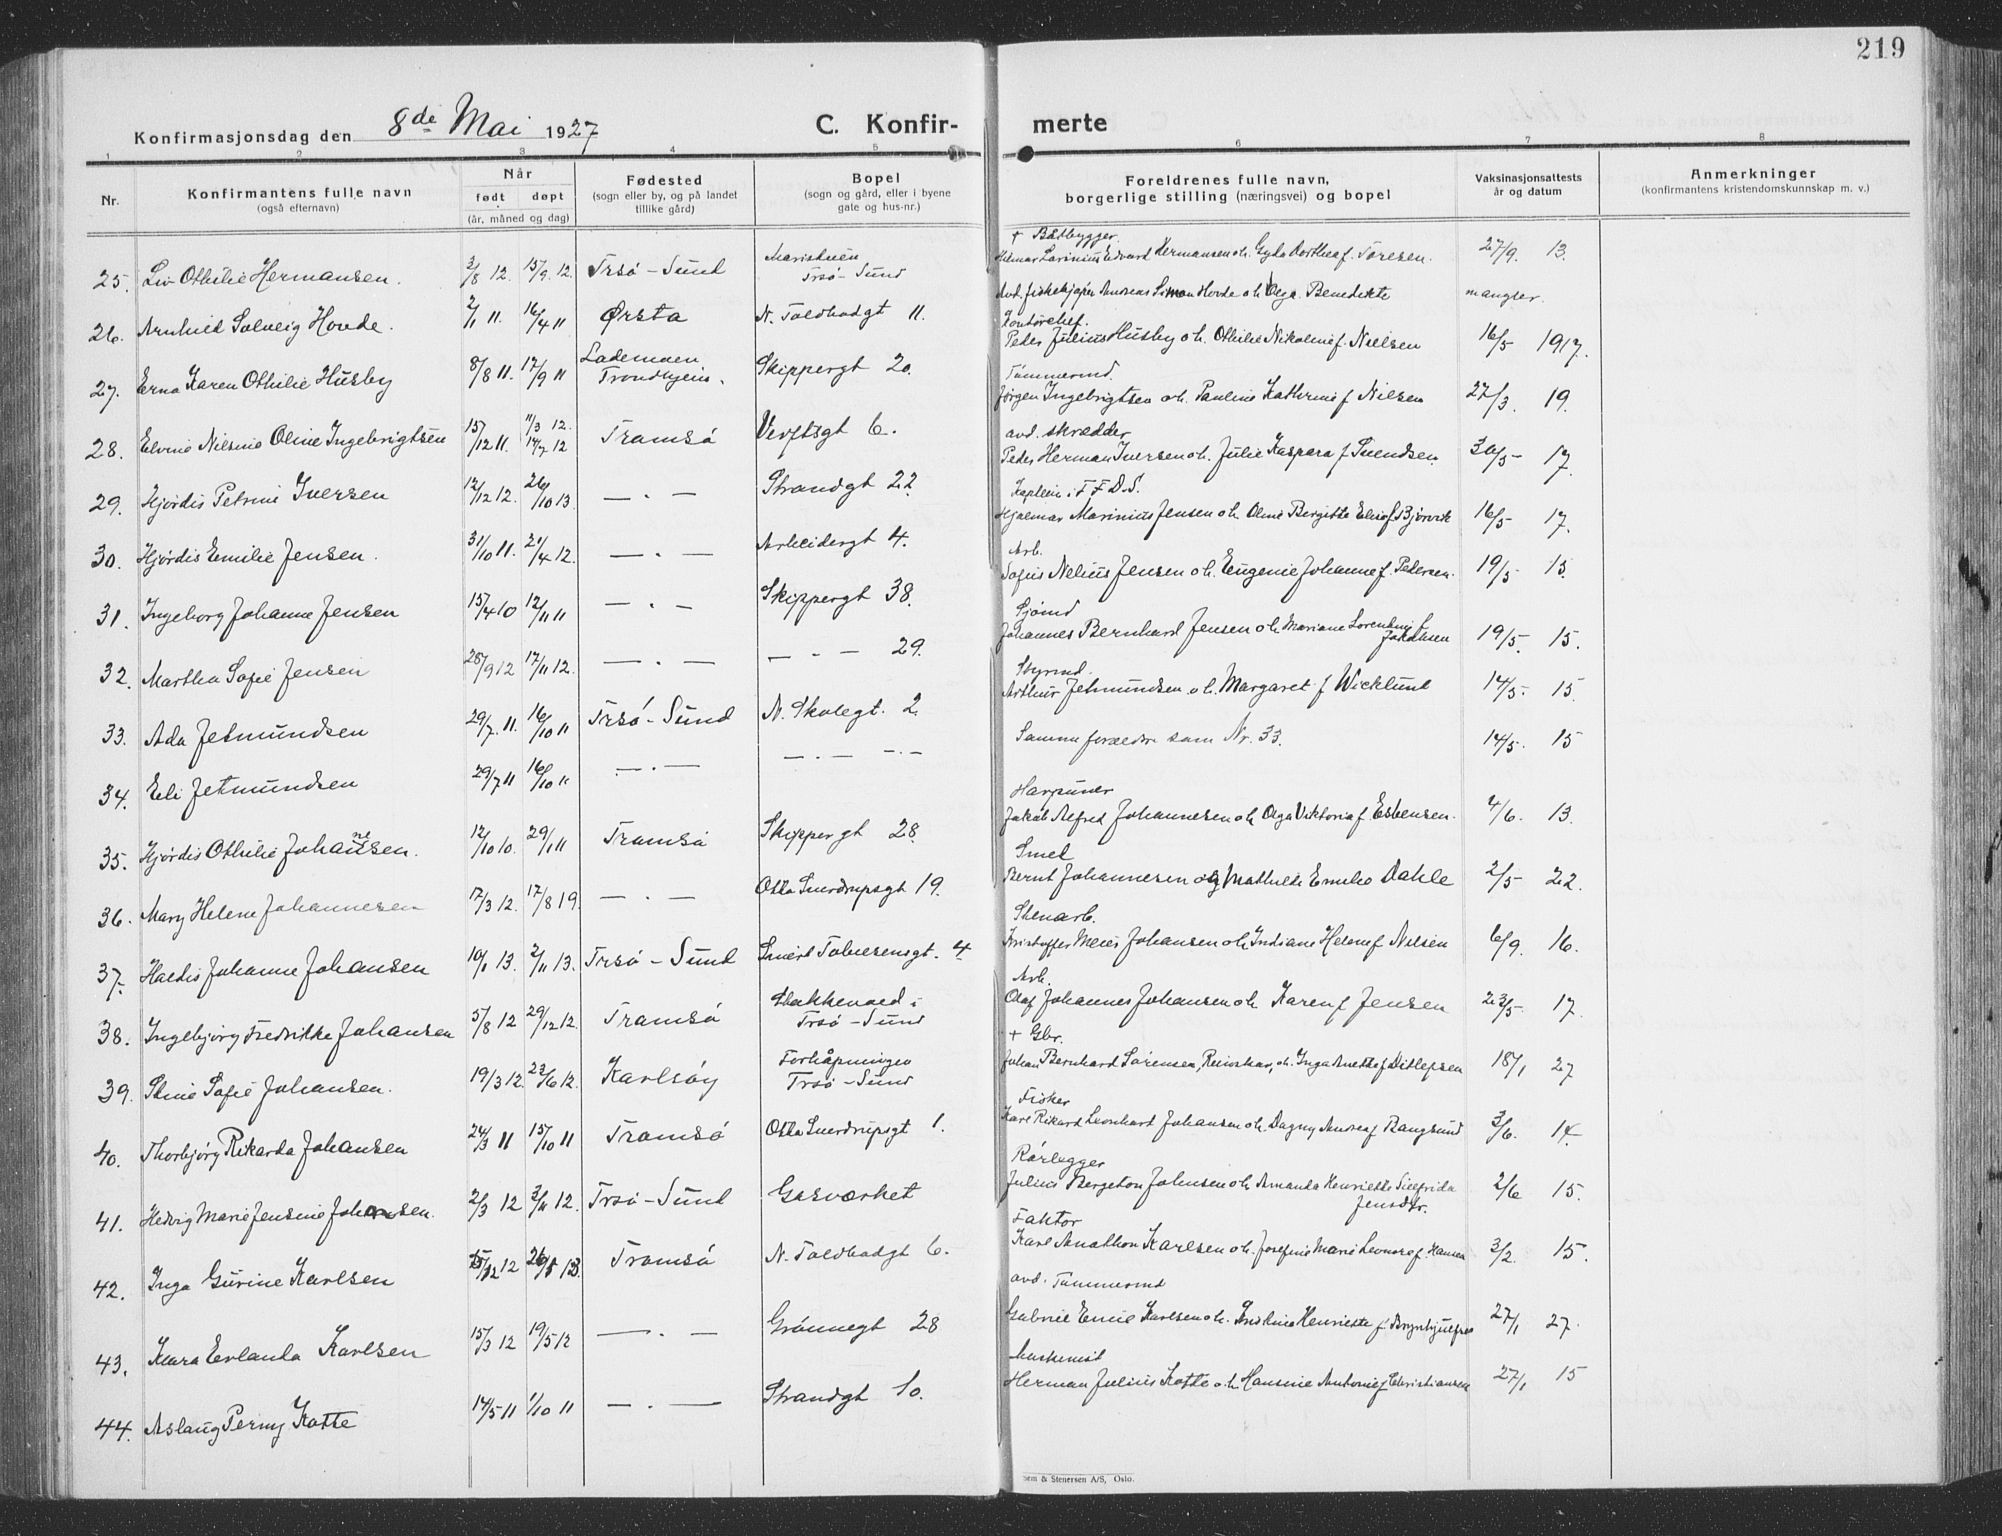 219
Konfirmasjonsdag den 8de Mai 1927
C. Konfir-
merte
1 2 3 4 5 6 7 8
Nr.
Konfirmantens fulle navn
(også efternavn)
Når
født døpt
(år, måned og dag)
Fødested
(sogn eller by, og på landet
tillike gård)
Bopel
(sogn og gård, eller i byene
gate og hus-nr.)
Foreldrenes fulle navn,
borgerlige stilling (næringsvei) og bopel
Vaksinasjonsattests
år og datum
Anmerkninger
(konfirmantens kristendomskunnskap m. v.)
+ Båtbygger
25. Liv Othilie Hermansen. 3/8 12. 15/9 12. Trsø-Sund Trsø-Sund Hilmar Larinius Edvard Hermansen o h. Gyda Dorthea f. Toresen. 27/9. 13.
26. Arnhild Solveig Hovde. 2/1 11. 16/4 11 Ørsta N. Toldbodgt 11. Avd. fiskekjøper Andreas Simon Hovde o h Olga Benedikte mangler.
Kontorchef.
27. Erna Karen Othilie Husby 8/8 11. 17/9 11 Lademoen Trondhjem. Skippergt 20. Peder Julius Husby o h. Othilie Nikoline f. Nielsen 16/5 1917.
Tømmermd.
28. Elvine Nilsine Oline Ingebrigtsen 15/12 11. 11/3 12. 14/7 12 Tromsø Verftsgt 6. Jørgen Ingebrigtsen o h. Pauline Kathrine f. Nielsen 27/3. 19.
avd. skrædder
29. Hjørdis Petrine Iversen 12/12 12. 26/10 13. — . — Strandgt 22. Peder Herman Iversen o h. Julie Kaspara f Svendsen. 30/5 17.
Kaptein i F.F.D.S.
30. Hjørdis Emilie Jensen. 31/10 11. 21/4 12. — . — Arbeidergt 4. Hjalmar Marinius Jensen o h Oline Bergitte Elise f Bjørvik 16/5 17.
Arb.
31. Ingeborg Johanne Jensen 15/4 10 12/11 11 — . — Skippergt 38. Sofus Nelius Jensen o h. Eugenie Johanne f Pedersen. 19/5 15.
Sjømd
32. Martha Sofie Jensen 28/9 12 17/11 12. — . — — . — 29. Johannes Bernhard Jensen o h Mariane f Jakobsen 19/5. 15.
Styrmd.
33. Ada Jetmundsen 29/7. 11. 16/10 11 Trsø-Sund N. Skolegt. 2. Arthur Jetmundsen o h. Margaret f Wicklund 14/5. 15
34. Eli Jetmundsen 29/7 11 16/10 11 — . — — . — — . — Samme forældre som Nr. 33. 14/5. 15
Harpuner
35. Hjørdis Othilie Johannesen. 12/10 10. 29/1 11 Tromsø Skippergt 28. Jakob Alfred Johannesen o h Olga Viktoria f. Esbensen. 4/6. 13.
Smed
36. Mary Helene Johannesen 17/3 12. 17/8 19. — . — Otto Sverdrupsgt 19. Bernt Johannesen og Mathilde Emilie Dahle 2/5 22.
Stenarb.
37. Haldis Johanne Johansen 10/1 13. 2/11 13. Trsø-Sund 4 Kristoffer Meier Johansen o h Indiane Helene f Nilsen 6/9. 16.
Arb.
38. Ingebjørg Fredrikke Johansen 5/8 12 29/12 12. Tromsø Stakkevold i Trsø-Sund Olaf Johannes Johansen o h. Karen f Jensen 23/5 17.
+ Gbr.
39. Stine Sofie Johansen. 19/3 12. 23/6 12. Karlsøy Forhåpningen Trsø-Sund Johan Bernhard Sørensen, Reinskar, o h. Inga Anette f Ditlefsen 18/1 27
Fisker
40. Thorbjørg Rikarda Johansen 24/3 11 15/10 11 Tromsø Otto Sverdrupsgt 1. Kare Rikard Leonhard Johansen o h. Dagny Andrea f Bangsund 3/6. 14.
Rørlegger
41. Hedvig Marie Jensine Johansen. 2/3 12 3/11 12. Trsø-Sund Gasværket Julius Bergeton Johnsen o h Amanda Henriette Sielfrida Jensdtr. 2/6 15.
Faktor
42. Inga Gurine Karlsen 15/12 12 26/5 13. Tromsø N. Toldbodgt 6. Karl Anathon Karlsen o h. Josefine Marie Leonore f. Hansen 3/2. 15.
avd. Tømmermd
43. Klara Erlanda Karlsen 15/3 12 19/5 12 — . — Grønnegt 28 Gabriel Emil Karlsen o h. Kristine Henriette f Brynhjulfsen 27/1 27.
Maskinist
44. Aslaug Perny Kotte 14/5 11 1/10 11 — . — Strandgt 10. Herman Julius Kotte o h Hansine Antonie f Christiansen 27/1 15
em & Stenersen A/S, Oslo.